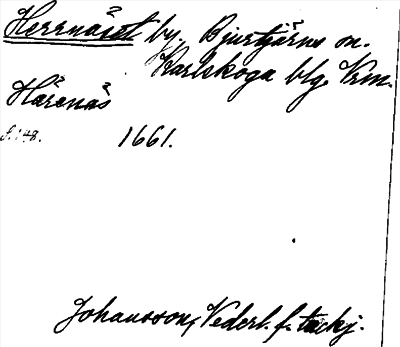 Herrnäset by. Bjurtjärns sn.
Karlskoga blg. Vrm.
Härenäs
s. 148. 1661.
Johansson, Vederl. f. tackj.